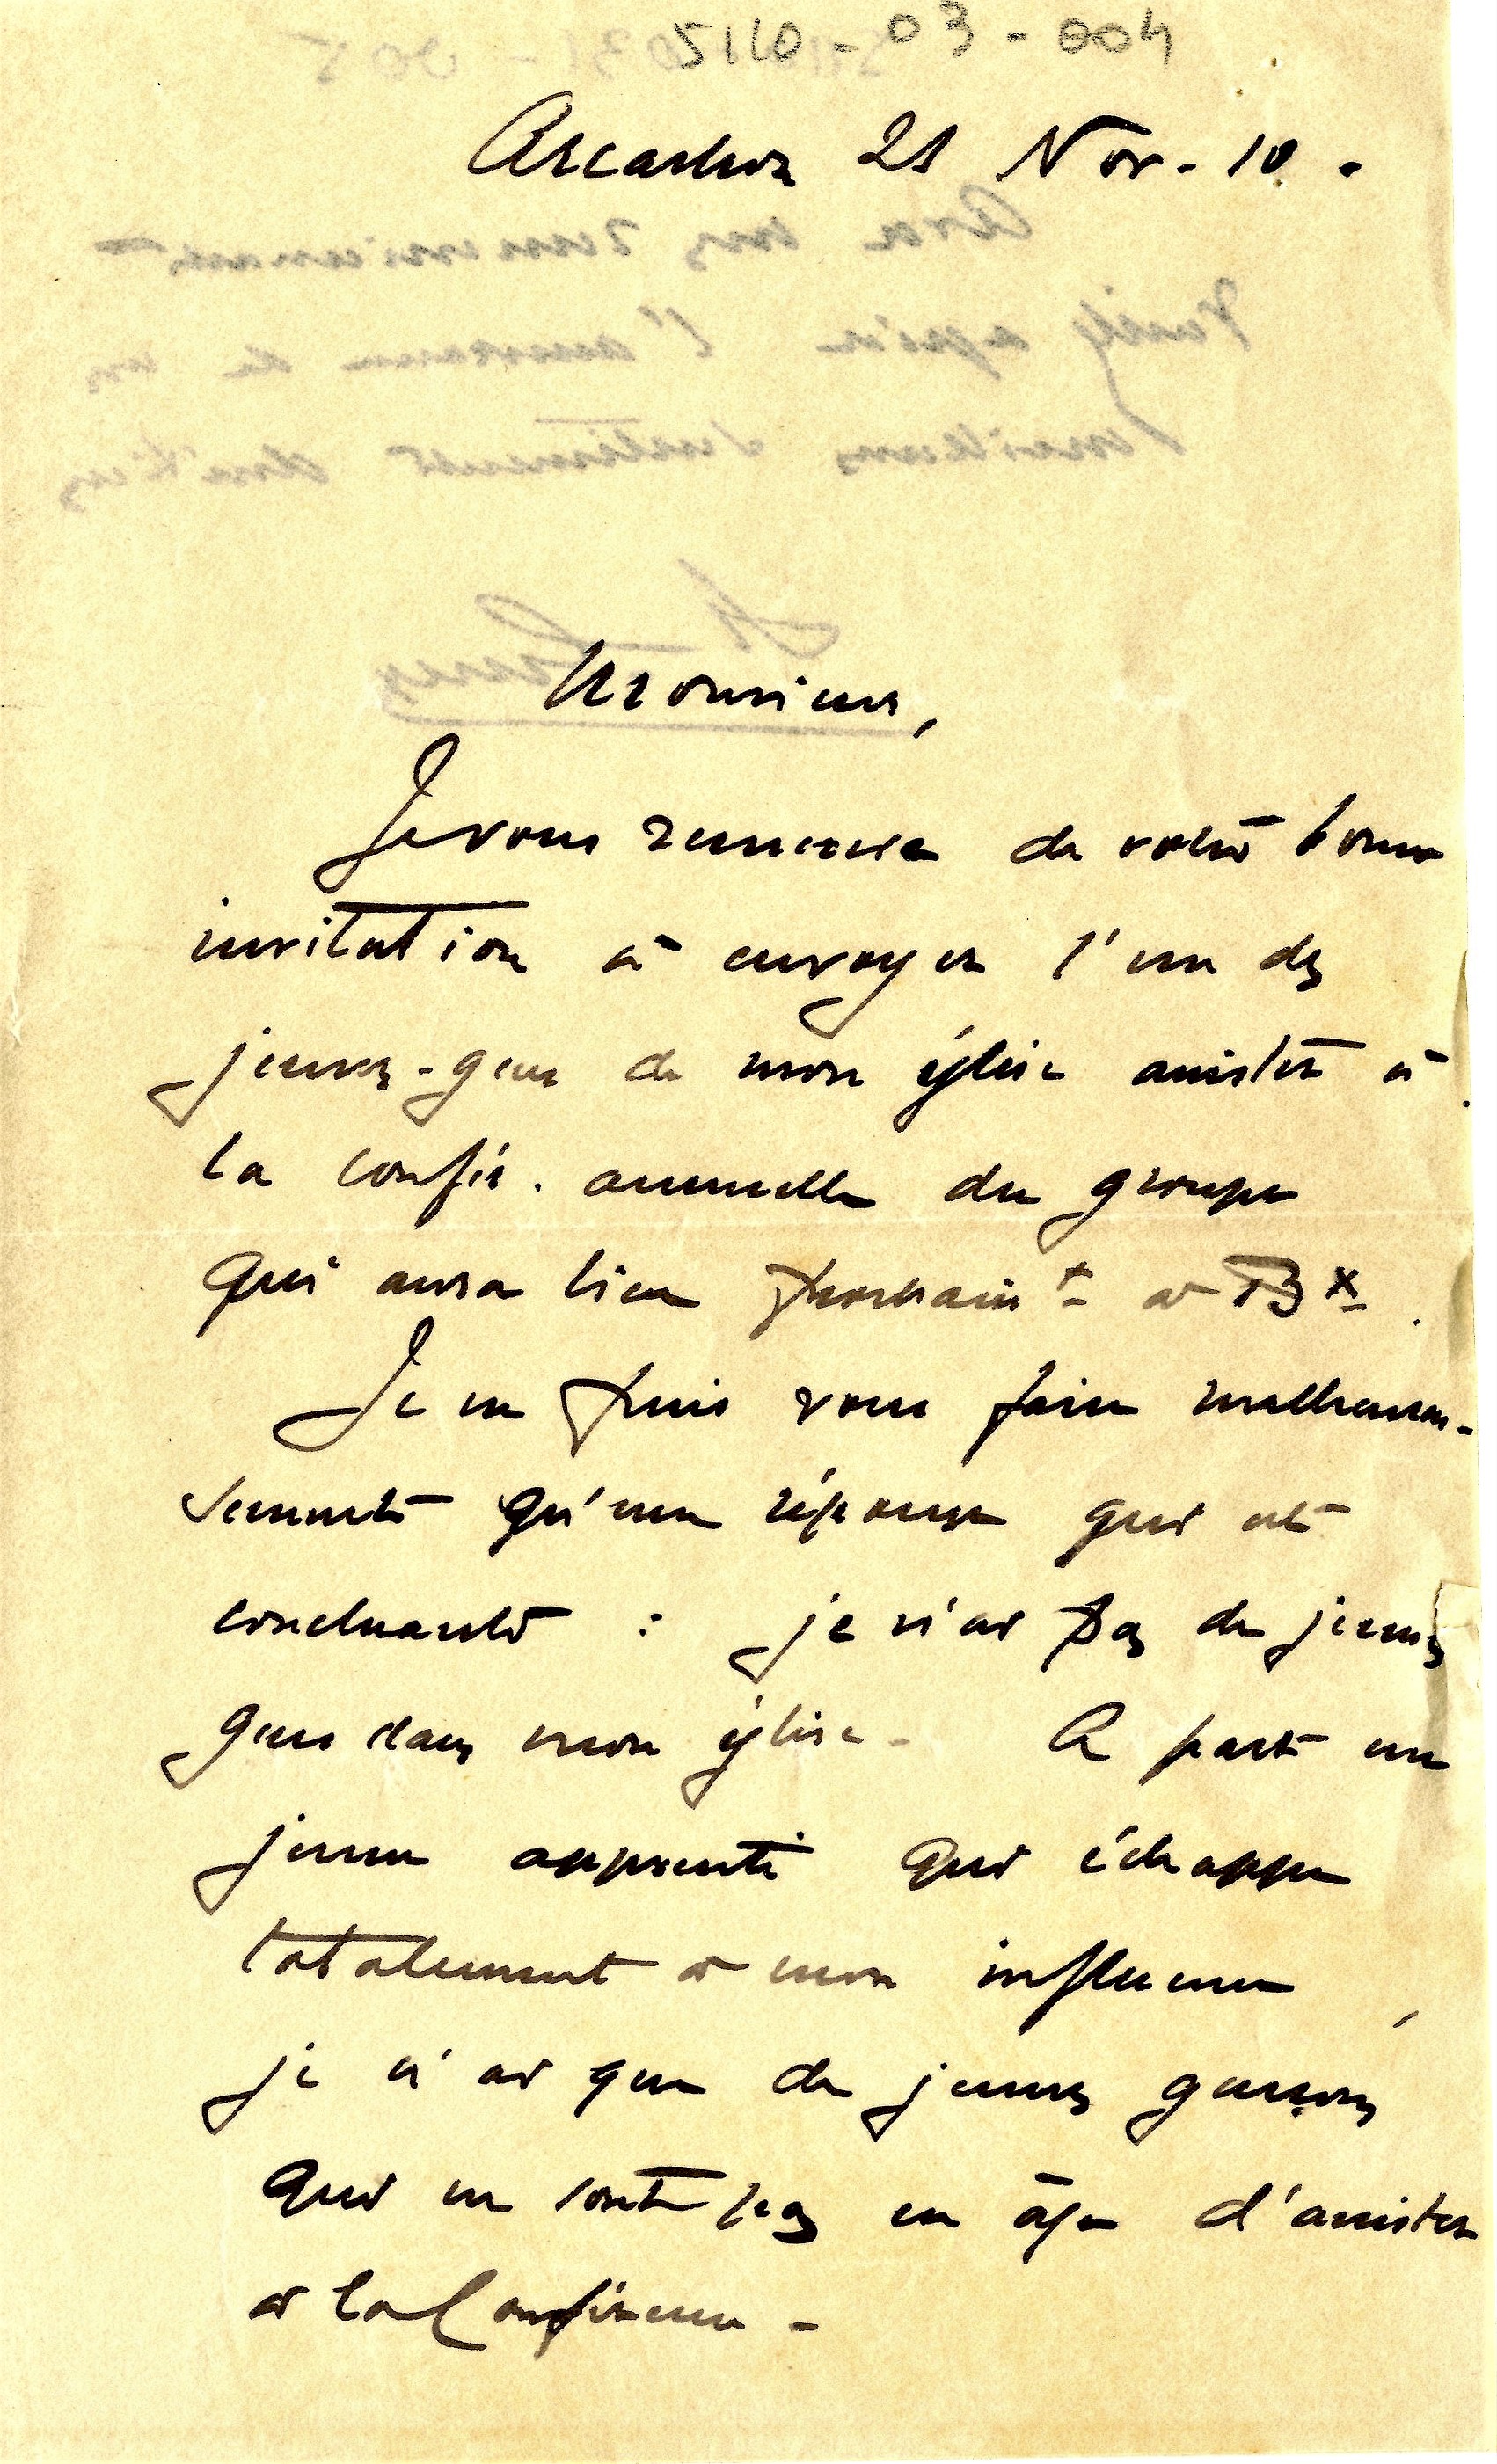 5110-03-004
Arcachon 21 Nov. 10.
Monsieur,
Je vous remercie de votre bonne
invitation à envoyer l'un des
jeunes-gens de mon église assister à
la confér. annuelle du groupe
qui aura lieu prochain^t à Bx.
Je ne puis vous faire malheureu-
sement qu'une réponse qui est
concluante : je n'ai pas de jeunes
gens dans mon église. A part un
jeune apprenti qui échappe
totalement à mon influence,
je n'ai que de jeunes garçons
qui ne sont pas en âge d'assister
à la Conférence.